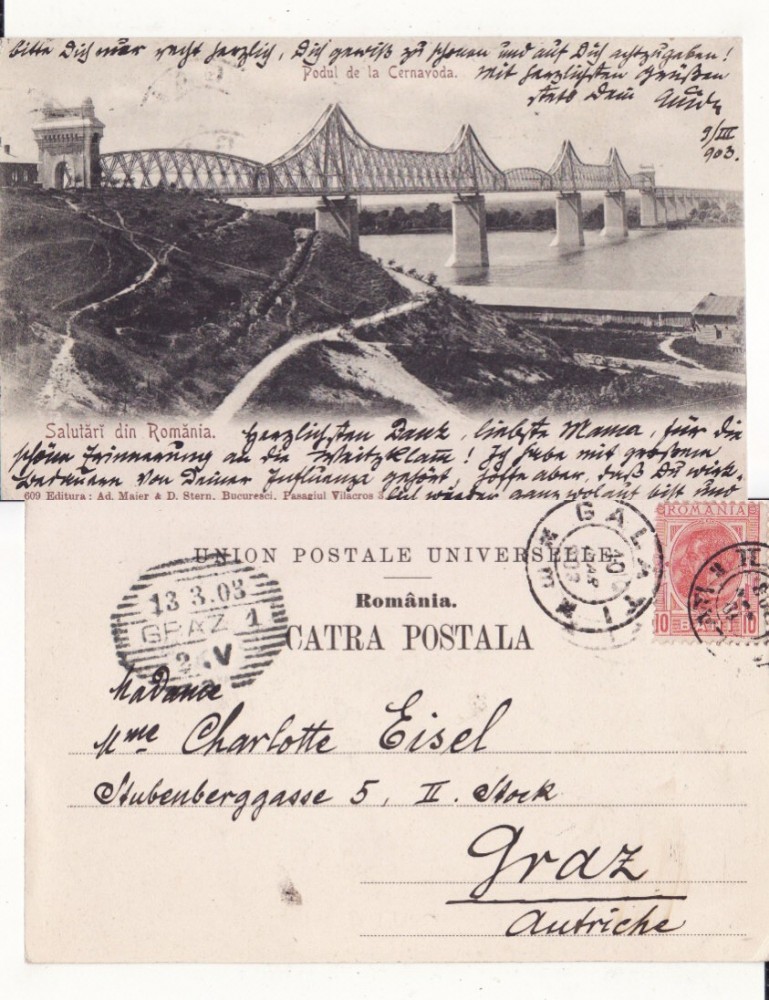 bitte Dich nur recht herzlich, Dich gewiß zu schonen und auf Dich achtzugeben!
Podul de la Cernavoda.
Mit herzlichsten Grüßen
stets Dein
9/III
903.
Salutări din România.
Herzlichsten Dank, liebste Mama, für die
schöne Erinnerung an die Weitzklamm! Ich habe mit großem
Bedauern von Deiner Influenza gehört, hoffe aber, daß Du wirk-
lich wieder ganz wolauf bist und
609 Editura: Ad. Maier & D. Stern, Bucuresci, Pasagiul Vilacros
UNION POSTALE UNIVERSELLE
România.
CATRA POSTALA
GALATI
ROMANIA
10 BANI 10
13 3.03
GRAZ 1
Madame
Mme Charlotte Eisel
Stubenberggasse 5, II. Stock
Graz
Autriche